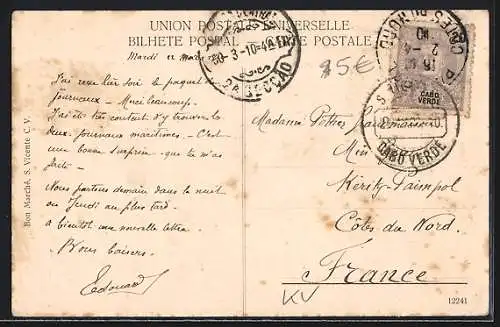 UNION POSTALE UNIVERSELLE
BILHETE POSTAL CARTE POSTALE
Mardi 22 mars
J'ai reçu hier soir le paquet de
journaux - Merci beaucoup.
J'ai été très content d'y trouver le
deux journaux maritimes. - C'est
une bonne surprise que tu m'as
faite -
Nous partons demain dans la nuit
ou Jeudi au plus tard.
a bientôt une nouvelle lettre.
Bons baisers.
Edouard
Bon Marché, S. Vicente C. V.
85€
CABO
VERDE
CABO VERDE
Madame Pottier
Kérity-Paimpol
Côtes du Nord.
France
KV
12241